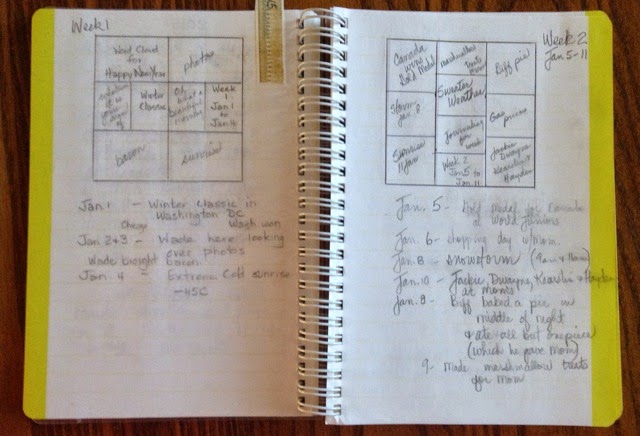 Week 1
Word Cloud
for
Happy New Year
photos
Winter
Classic
Oh,
what a
beautiful
morning
Week
1
Jan 1
to
Jan 4
bacon
sunrise
Jan 1 - Winter Classic in
Washington DC
Chicago Wash won
Jan 2+3 - Wade here looking
over photos
Wade bought bacon
Jan. 4 - Extreme Cold sunrise
-45C
Week 2
Jan 5-11
Canada
wins
Gold Medal
marshmallow
treats
Biff pie
Snow
Jan 8
Sweater
Weather
Gas prices
Journaling
for
week
Sunrise
11 Jan
Week 2
Jan 5 to
Jan 11
Jackie
Dwayne
Hayden
Jan. 5 - Gold medal for Canada
at World Juniors
Jan. 6 - shopping day w/mom
Jan. 8 - snowstorm
Jan. 10 - Jackie, Dwayne, + Hayden
at mom's
Jan. 9 - Biff baked a pie in
middle of night
+ ate all but one piece
(which he gave Mom)
9 - Made marshmallow treats
for mom